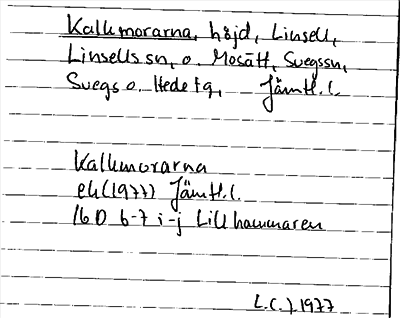 Kallmorarna, höjd, Linsell,
Linsells sn, o. Mosätt, Svegssn,
Svegs o. Hede tg, Jämtl. l.
Kallmorarna
ek (1977) Jämtl. l.
16D 6-7 i-j Lillhammaren
L.C.J. 1977